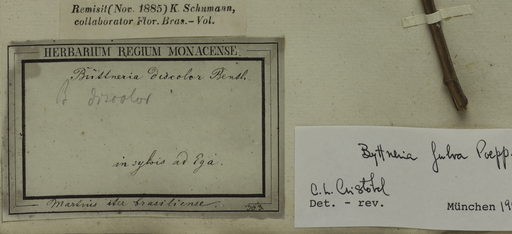 Remisit (Nov. 1885) K. Schumann,
collaborator Flor. Bras.-Vol.
HERBARIUM REGIUM MONACENSE.
Büttneria discolor Benth.
B discolor
in sylvis ad Ega.
Martius iter brasiliense.
Byttneria fulva Poepp.
C. L. Cristóbal
Det. - rev.
München 19